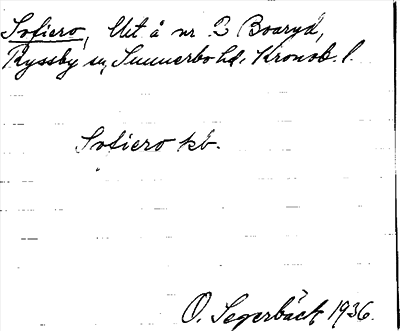 Sofiero, Utt å nr 2 Boaryd,
Ryssby sn, Sunnerbo hd, Kronob. l.
Sofiero kb.
O. Segerbäck 1936.